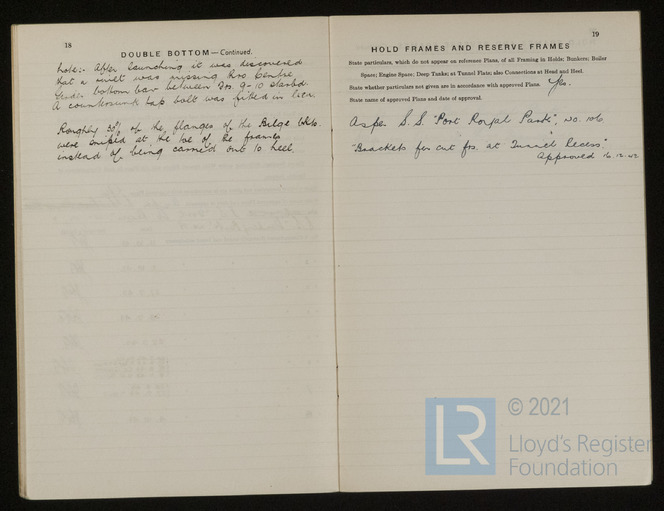 18
DOUBLE BOTTOM—Continued.
Note:- After launching it was discovered
that a rivet was missing thro centre
girder bottom bar between Frs. 9-10 starbd.
A countersunk tap bolt was fitted in lieu.
Roughly 30% of the flanges of the Bilge bkts.
were sniped at the toe of the frames
instead of being carried out to heel
19
HOLD FRAMES AND RESERVE FRAMES
State particulars, which do not appear on reference Plans, of all Framing in Holds; Bunkers; Boiler
Space; Engine Space; Deep Tanks; at Tunnel Flats; also Connections at Head and Heel.
State whether particulars not given are in accordance with approved Plans. Yes.
State name of approved Plans and date of approval.
As per S.S. "Port Royal Park", No. 106
"Brackets for cut frs. at Tunnel Recess",
Approved 16.12.42
LR
© 2021
Lloyd's Register
Foundation